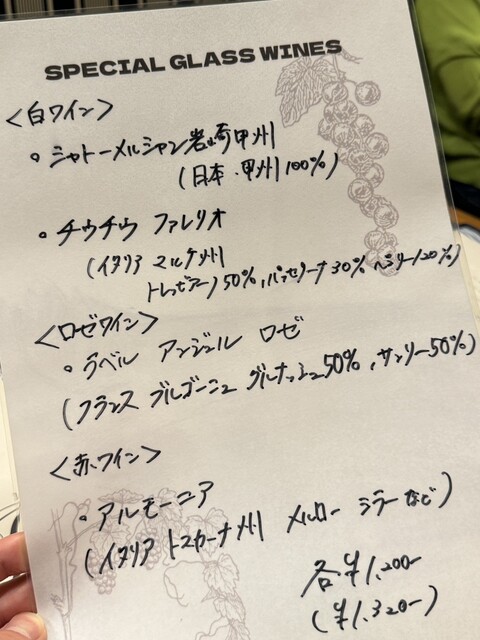 SPECIAL GLASS WINES
<白ワイン>
・シャトーメルシャン岩崎甲州
(日本・甲州100%)
・チウチウ ファレリオ
(イタリア マルケ州
トレッビアーノ50%,パッセリーナ30%ペコリーノ20%)
<ロゼワイン>
・ラベル アンジェル ロゼ
(フランス ブルゴーニュ グルナッシュ50%,サンソー50%)
<赤ワイン>
・アルモーニア
(イタリア トスカーナ州 メルロー シラーなど)
各¥1,200-
(¥1,320-)